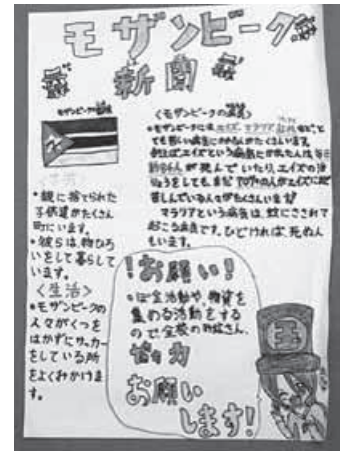 モザンビーク
新聞
モザンビークの国旗
・親に捨てられた
子供達がたくさん
町にいます。
・彼らは、物ひろ
いをして暮らして
います。
〈生活〉
・モザンビークの
人々がくつを
はかずにサッカー
をしている所
をよくみかけま
す。
〈モザンビークの病気〉
・モザンビークには、エイズ、マラリア
ても悪い病気にかかる人がたくさんいます。
例えばエイズという病気にかかった人は、毎日
人が死んでいたり、エイズの治
りょうをしても、まだ
苦しんでいる人々がたくさんいます。
マラリアという病気は、蚊にさされて
おこる病気です。ひどければ、死ぬ人
もいます。
!お願い!
・ぼ金活動や、物資を
集める活動をする
ので全校の皆さん、
ぜひ
お願い
します!
王